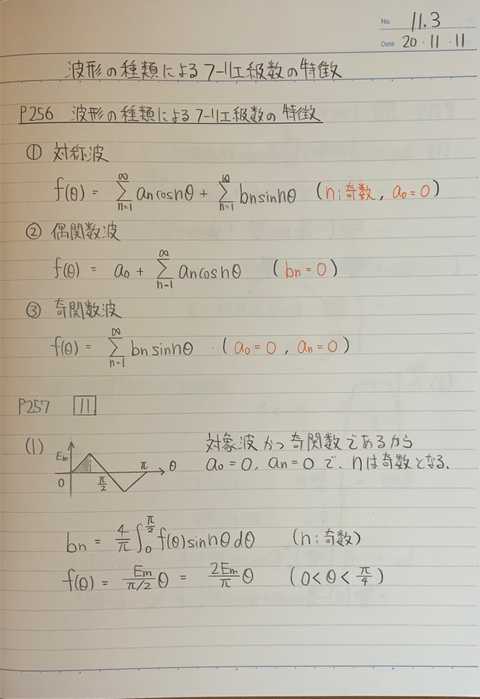 No. 11.3
Date 20・11・11
波形の種類によるフーリエ級数の特徴
P256 波形の種類によるフーリエ級数の特徴
① 対称波
f(θ) = ∞∑n=1 an cosnθ + ∞∑n=1 bn sinnθ (n:奇数, a₀=0)
② 偶関数波
f(θ) = a₀ + ∞∑n=1 an cosnθ (bn=0)
③ 奇関数波
f(θ) = ∞∑n=1 bn sinnθ (a₀=0, an=0)
P257 11
(1) Em 0 π/2 π θ
対象波かつ奇関数であるから
a₀=0, an=0 で, nは奇数となる.
bn = 4/π ∫₀^(π/2) f(θ)sinnθdθ (n:奇数)
f(θ) = Em/(π/2) θ = 2Em/π θ (0<θ<π/4)